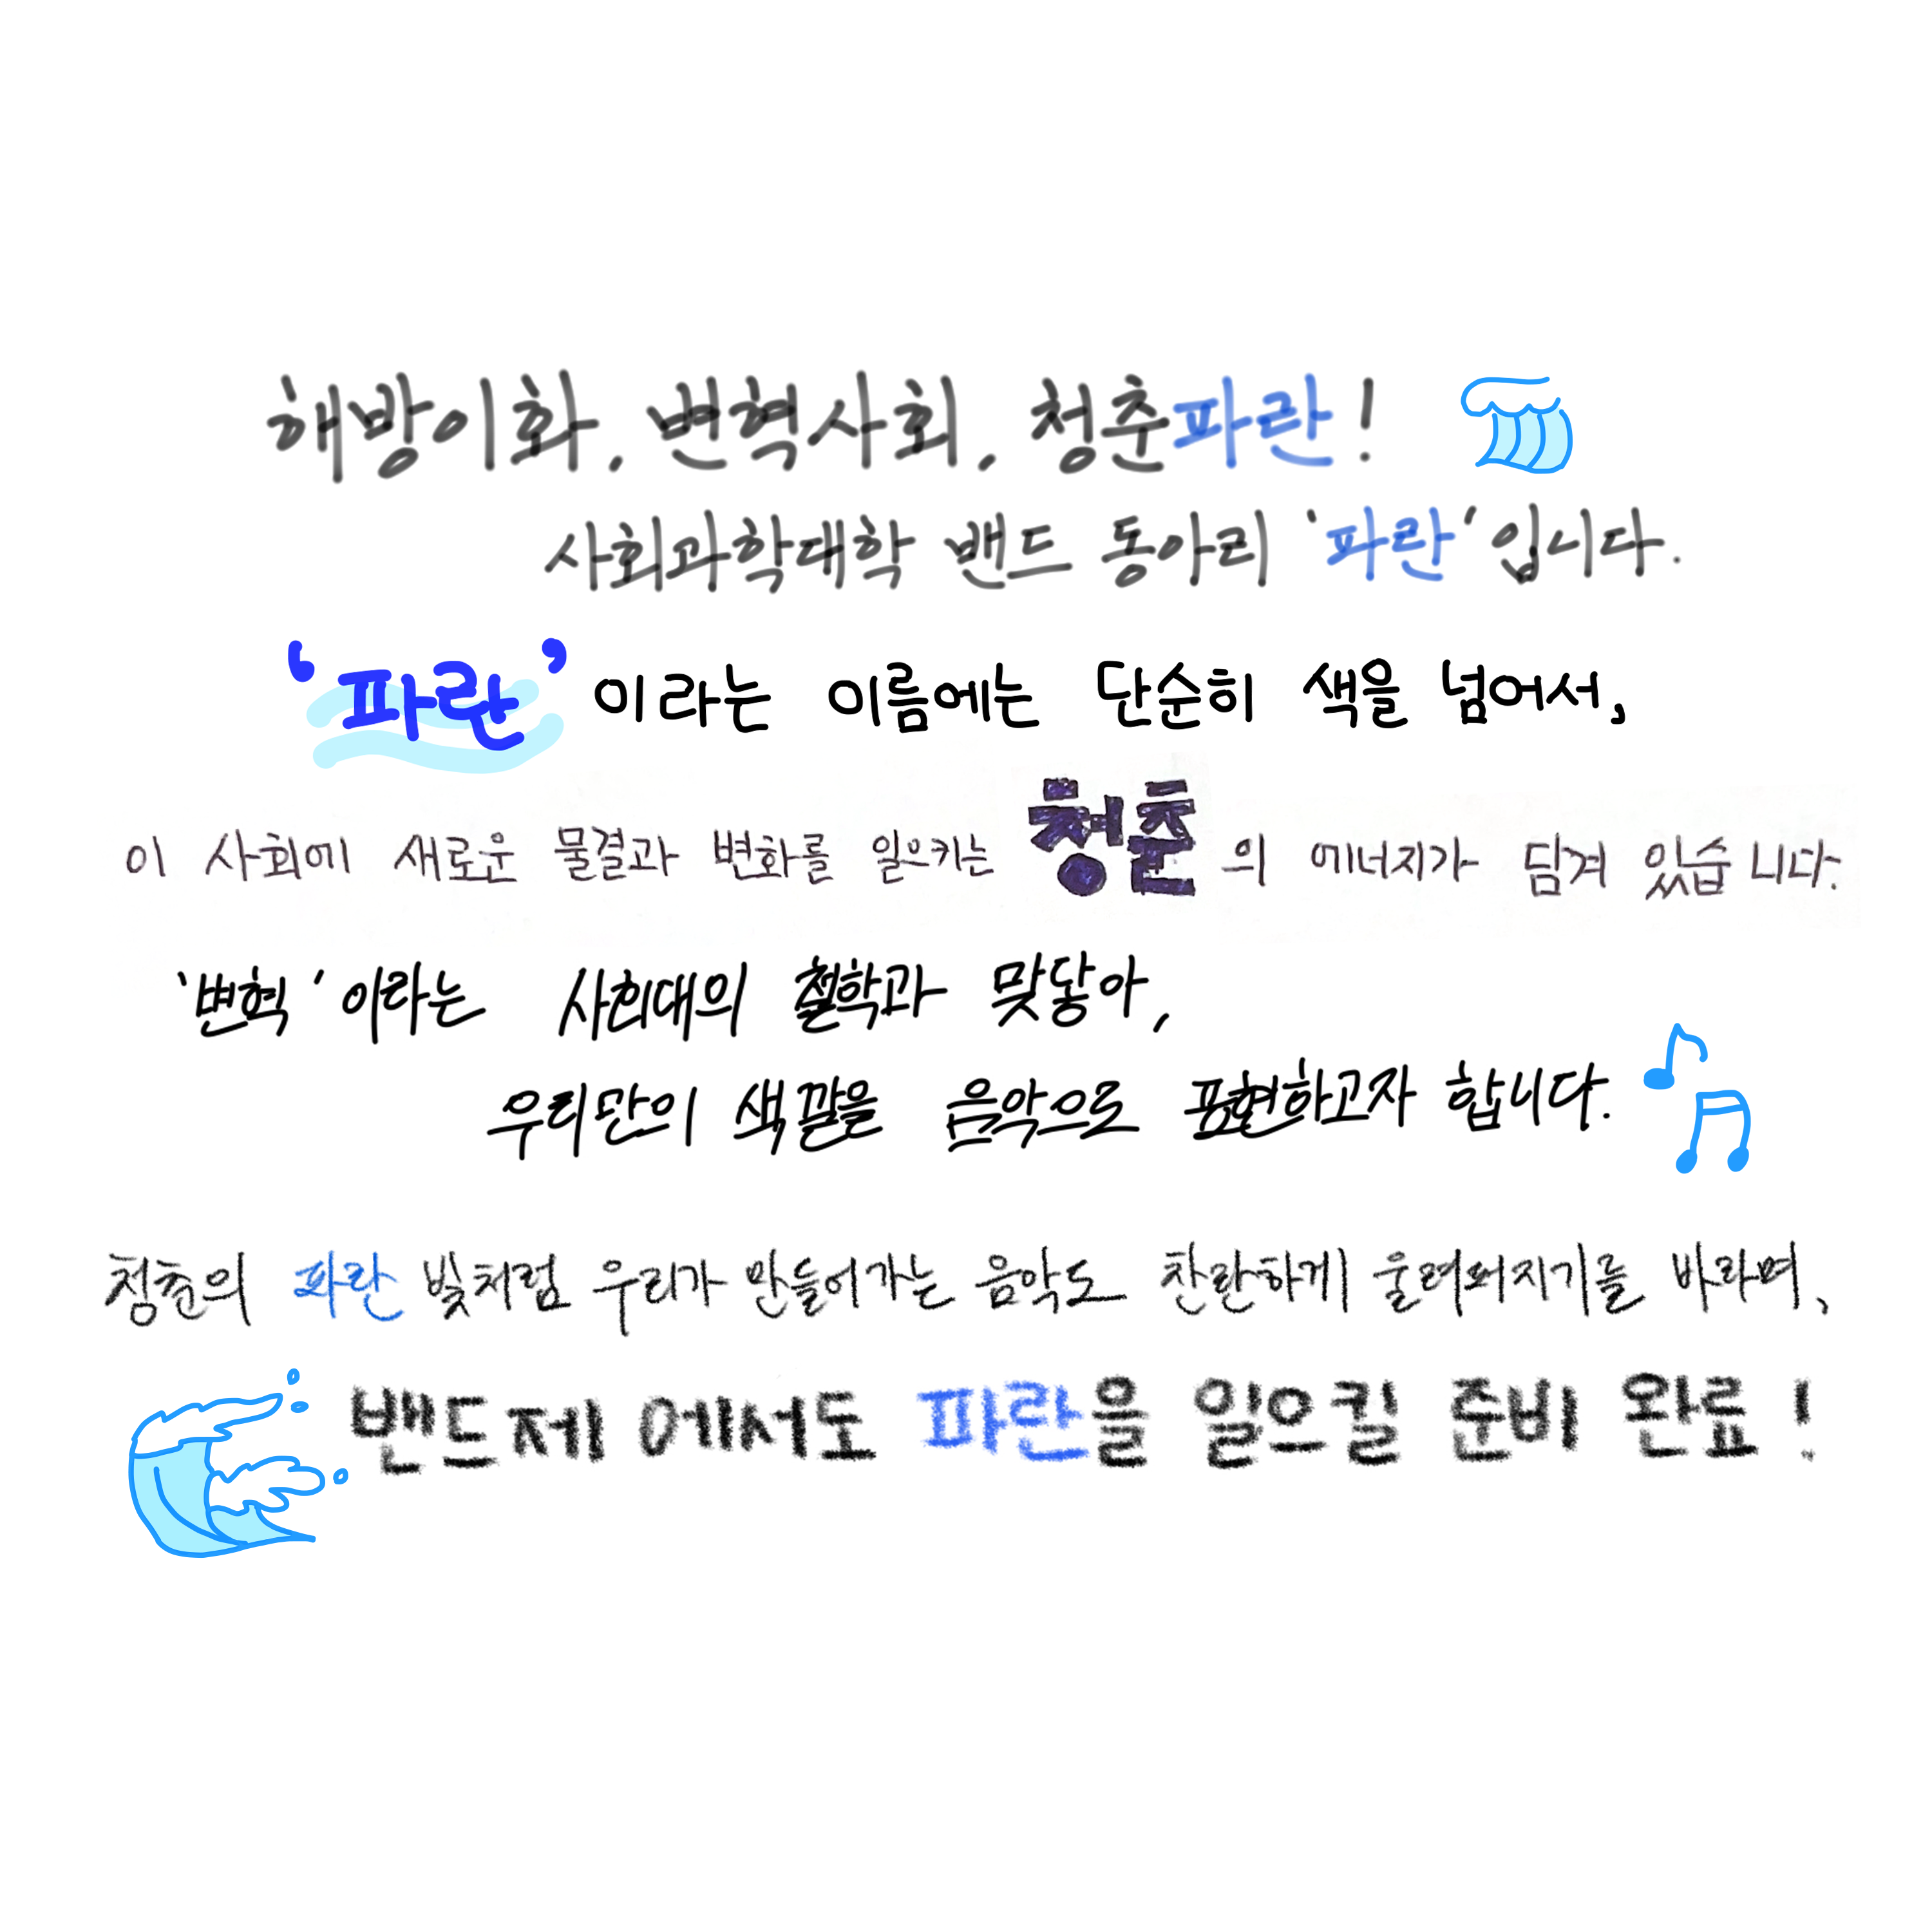 해방이화, 변혁사회, 청춘파란!
사회과학대학 밴드 동아리 '파란'입니다.
'파란'이라는 이름에는 단순히 색을 넘어서,
이 사회에 새로운 물결과 변화를 일으키는 청춘의 에너지가 담겨 있습니다.
'변혁'이라는 사회대의 철학과 맞닿아,
우리만의 색깔을 음악으로 표현하고자 합니다.
청춘의 파란 빛처럼 우리가 만들어가는 음악도 찬란하게 울려퍼지기를 바라며,
밴드제에서도 파란을 일으킬 준비 완료!